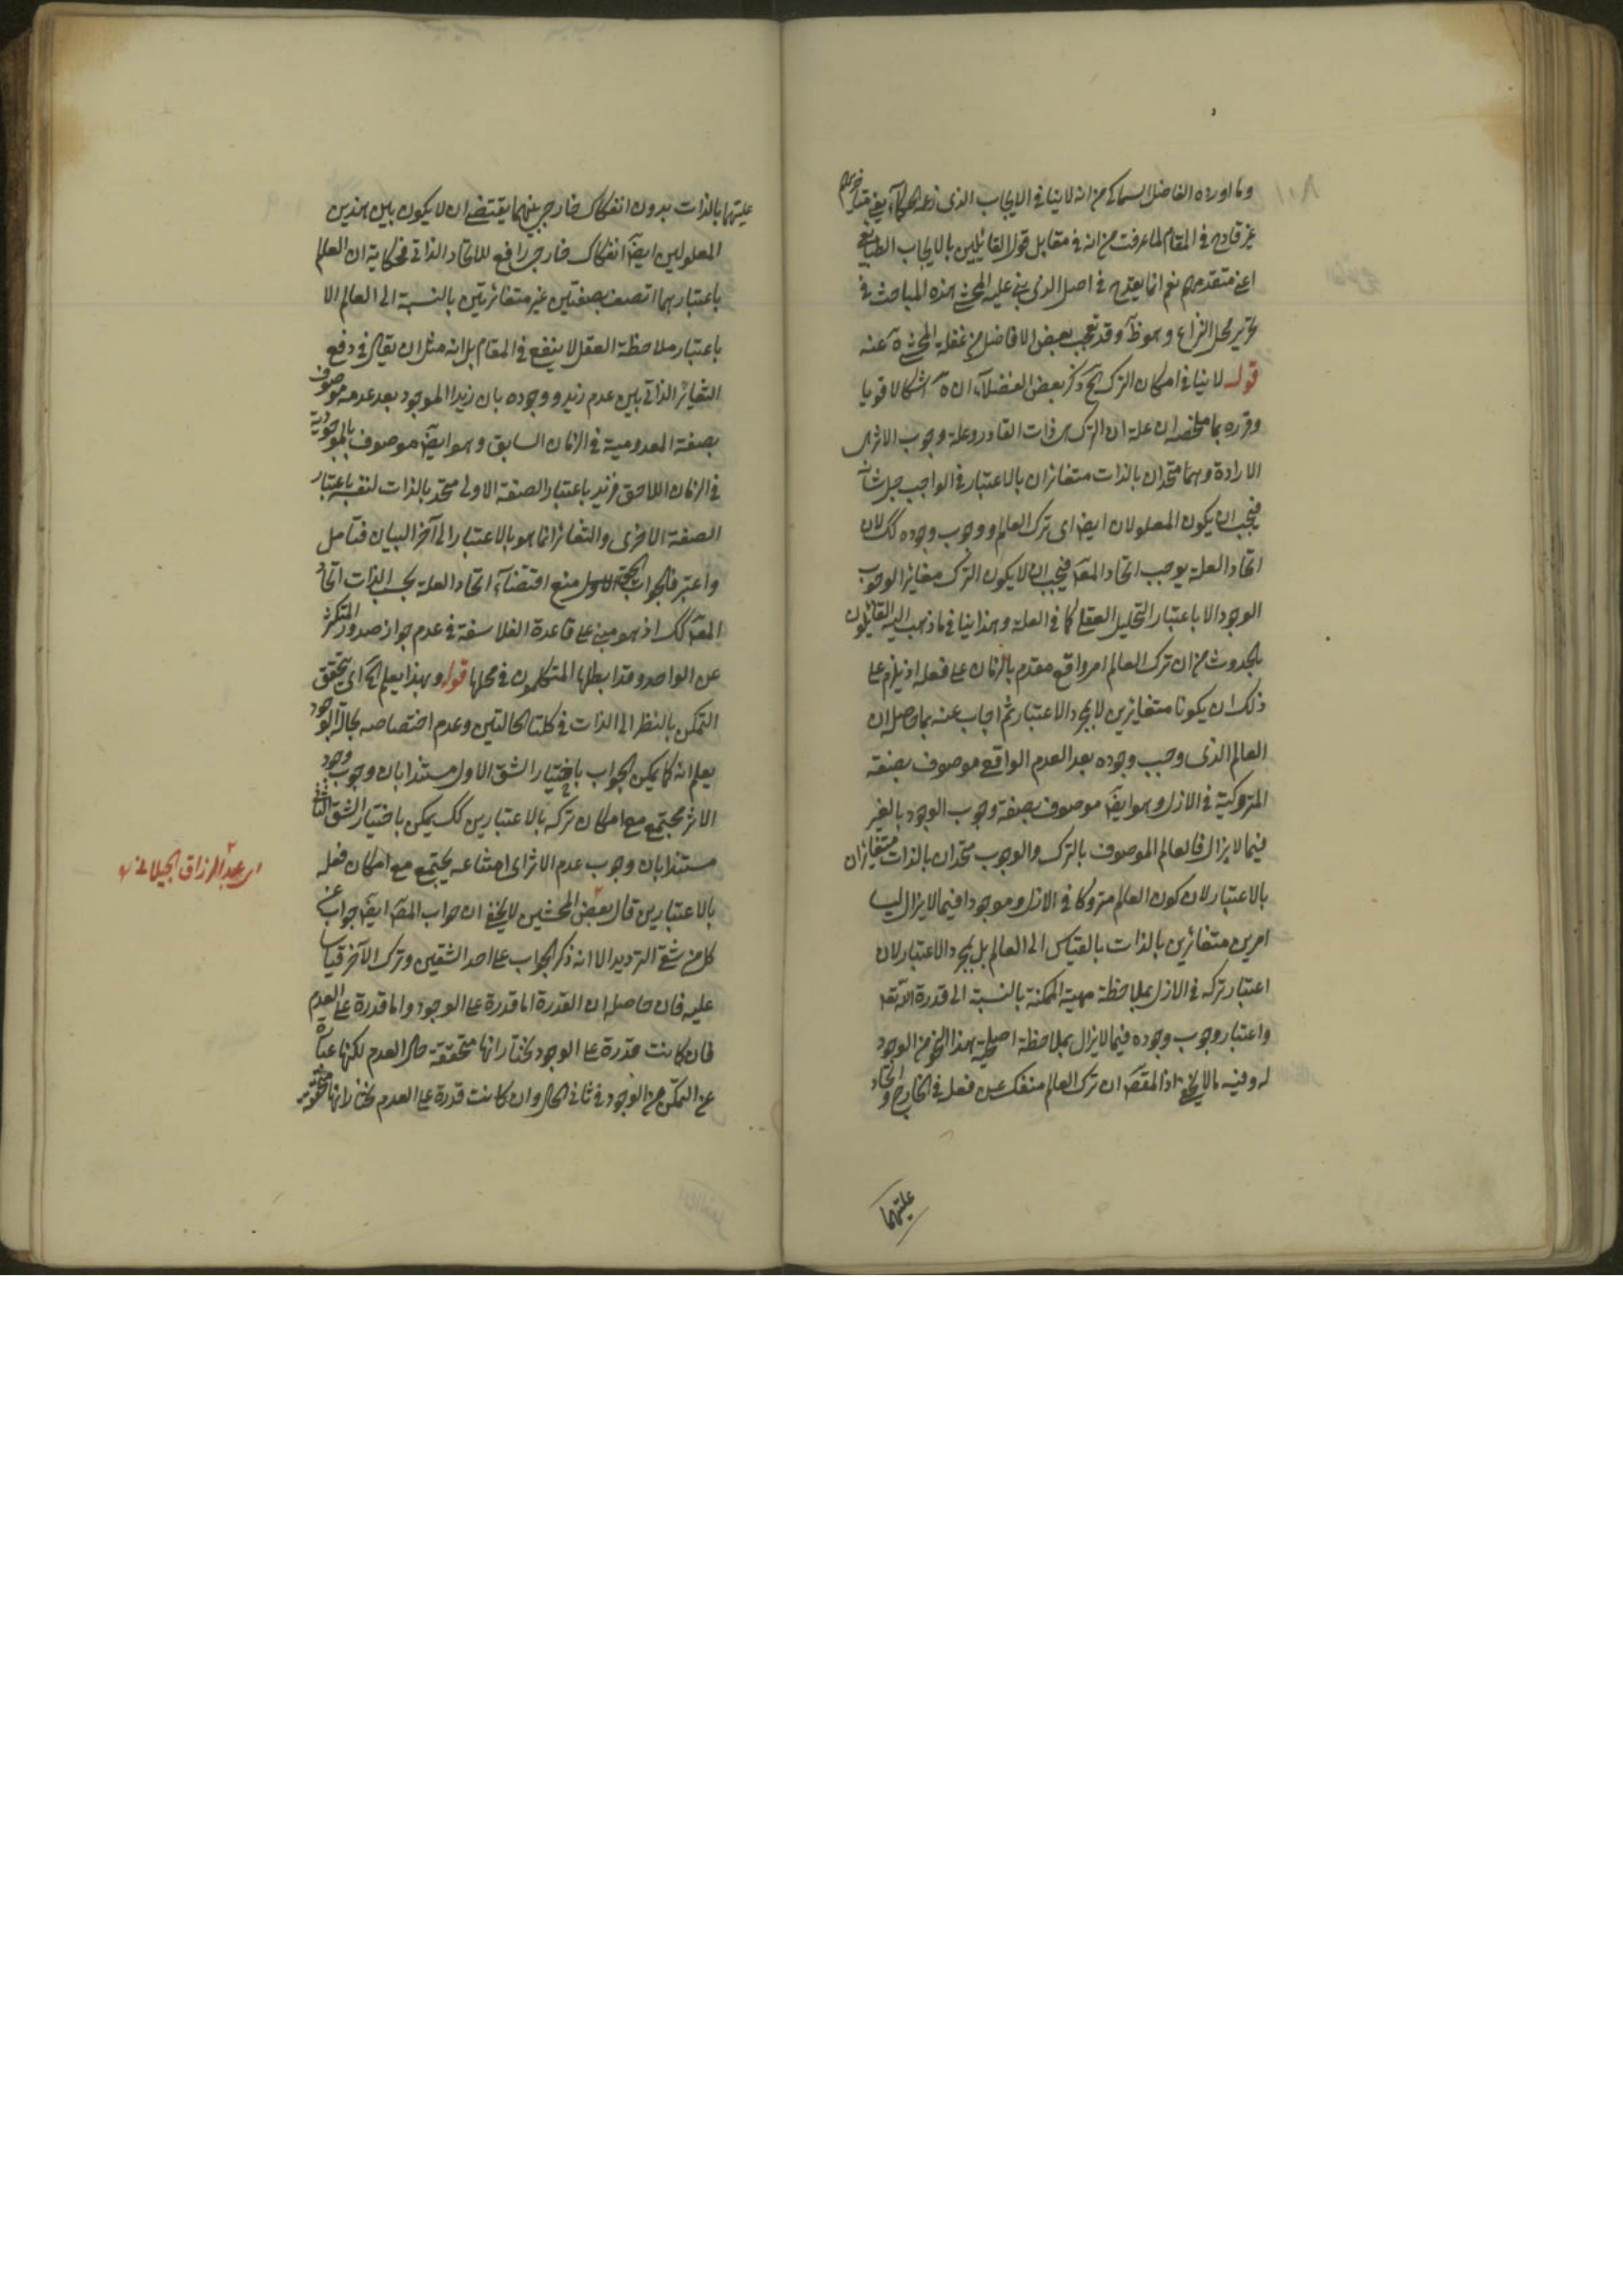 وما اورده الفاضل السماكى من انه لا ينافى الايجاب الذى زعمه الحكماء يعنى متاخريهم
غير قادح فى المقام لما عرفت من انه فى مقابل قول القائلين بالايجاب الطبايعى
اعنى متقدميهم نعم انما يقدح فى اصل الذى بنى عليه المحشى هذه المباحث فى
تحرير محل النزاع وهو ظ وقد تعجب بعض الافاضل من غفلة المحشى ره عنه
قوله لا ينافى امكان الترك آه ذكر بعض الفضلاء ان ه اشكالا قويا
وقرره بما ملخصه ان علة ان الترك هى ذات القادر وعلة وجوب الاثر هى
الارادة وهما متحدان بالذات متغائران بالاعتبار فى الواجب جل شانه
فيجب ان يكون المعلولان ايضا اى ترك العالم ووجوب وجوده كك لان
اتحاد العلة يوجب اتحاد المعلول فيجب ان لا يكون الترك مغائرا لوجوب
الوجود الا باعتبار التحليل العقلى كما فى العلة وهذا ينافى ما ذهب اليه القائلون
بالحدوث من ان ترك العالم امر واقع مقدم بالزمان على فعله اذ يلزم على
ذلك ان يكونا متغايرين لا بمجرد الاعتبار ثم اجاب عنه بما حاصله ان
العالم الذى وجب وجوده بعد العدم الواقع موصوف بصفة
المتروكية فى الازل وهو ايضا موصوف بصفة وجوب الوجود بالغير
فيما لا يزال فالعالم الموصوف بالترك والوجوب متحدان بالذات متغايران
بالاعتبار لان كون العالم متروكا فى الازل وموجودا فيما لا يزال ليسا
امرين متغائرين بالذات بالقياس الى العالم بل بمجرد الاعتبار لان
اعتبار تركه فى الازل بملاحظة مهية الممكنة بالنسبة الى قدرة الله تعالى
واعتبار وجوب وجوده فيما لا يزال بملاحظة اصلحية هذا النحو من الوجود
له وفيه ما لا يخفى اذ المقصود ان ترك العالم منفك عن فعله فى الخارج واتحاد
علتهما
علتهما بالذات بدون انفكاك خارجى بينهما يقتضى ان لا يكون بين هذين
المعلولين ايضا انفكاك خارجى رافع للاتحاد الذاتى فحكاية ان العالم
باعتبارهما اتصف بصفتين غير متغائرتين بالنسبة الى العالم الا
باعتبار ملاحظة العقل لا ينفع فى المقام بل انه مثل ان يقال فى دفع
التغائر الذاتى بين عدم زيد ووجوده بان زيدا الموجود بعد عدمه موصوف
بصفة المعدومية فى الزمان السابق وهو ايضا موصوف بالموجودية
فى الزمان اللاحق فزيد باعتبار الصفة الاولى متحد بالذات لنفسه باعتبار
الصفة الاخرى والتغائر انما هو بالاعتبار الى آخر البيان فتامل
واعتبر فالجواب الحق منع اقتضاء اتحاد العلة بحسب الذات اتحاد
المعلول كك اذ هو مبنى على قاعدة الفلاسفة فى عدم جواز صدور المتكثر
عن الواحد وقد ابطلها المتكلمون فى محلها قوله وبهذا يعلم آه اى بتحقق
التمكن بالنظر الى الذات فى كلتا الحالتين وعدم اختصاصه بحالة الوجود
يعلم انه كما يمكن الجواب باختيار الشق الاول مستندا بان وجوب وجود
الاثر مجتمع مع امكان تركه بالاعتبارين كك يمكن باختيار الشق الثانى
مستندا بان وجوب عدم الاثر اى امتناعه يجتمع مع امكان فعله
بالاعتبارين قال بعض المحشين لا يخفى ان جواب المصنف ايضا جواب عن
كل من شقى الترديد الا انه ذكر الجواب على احد الشقين وترك الآخر قياسا
عليه فان حاصله ان القدرة اما قدرة على الوجود واما قدرة على العدم
فان كانت قدرة على الوجود نختار انها متحققة حال العدم لكنها عبارة
عن التمكن من الوجود فى ثانى الحال وان كانت قدرة على العدم نختار انها متحققة
اى عبد الرزاق الجيلانى